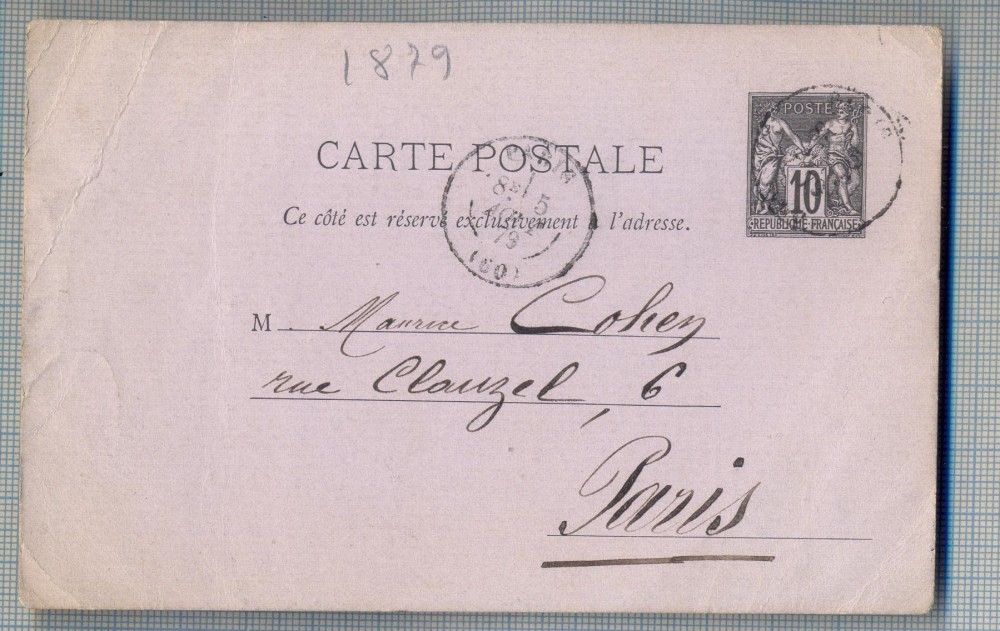 1879
POSTE
10
REPUBLIQUE FRANÇAISE
CARTE POSTALE
PARIS
5
79
(60)
Ce côté est réservé exclusivement à l'adresse.
M. Maurice Cohen
rue Clauzel, 6
Paris